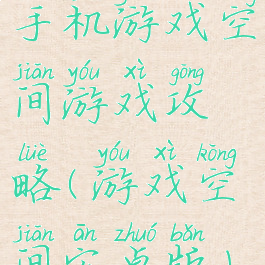 手机游戏空
jiān yóu xì gōng
间游戏攻
lüè yóu xì kōng
略(游戏空
jiān ān zhuó bǎn
间安卓版)